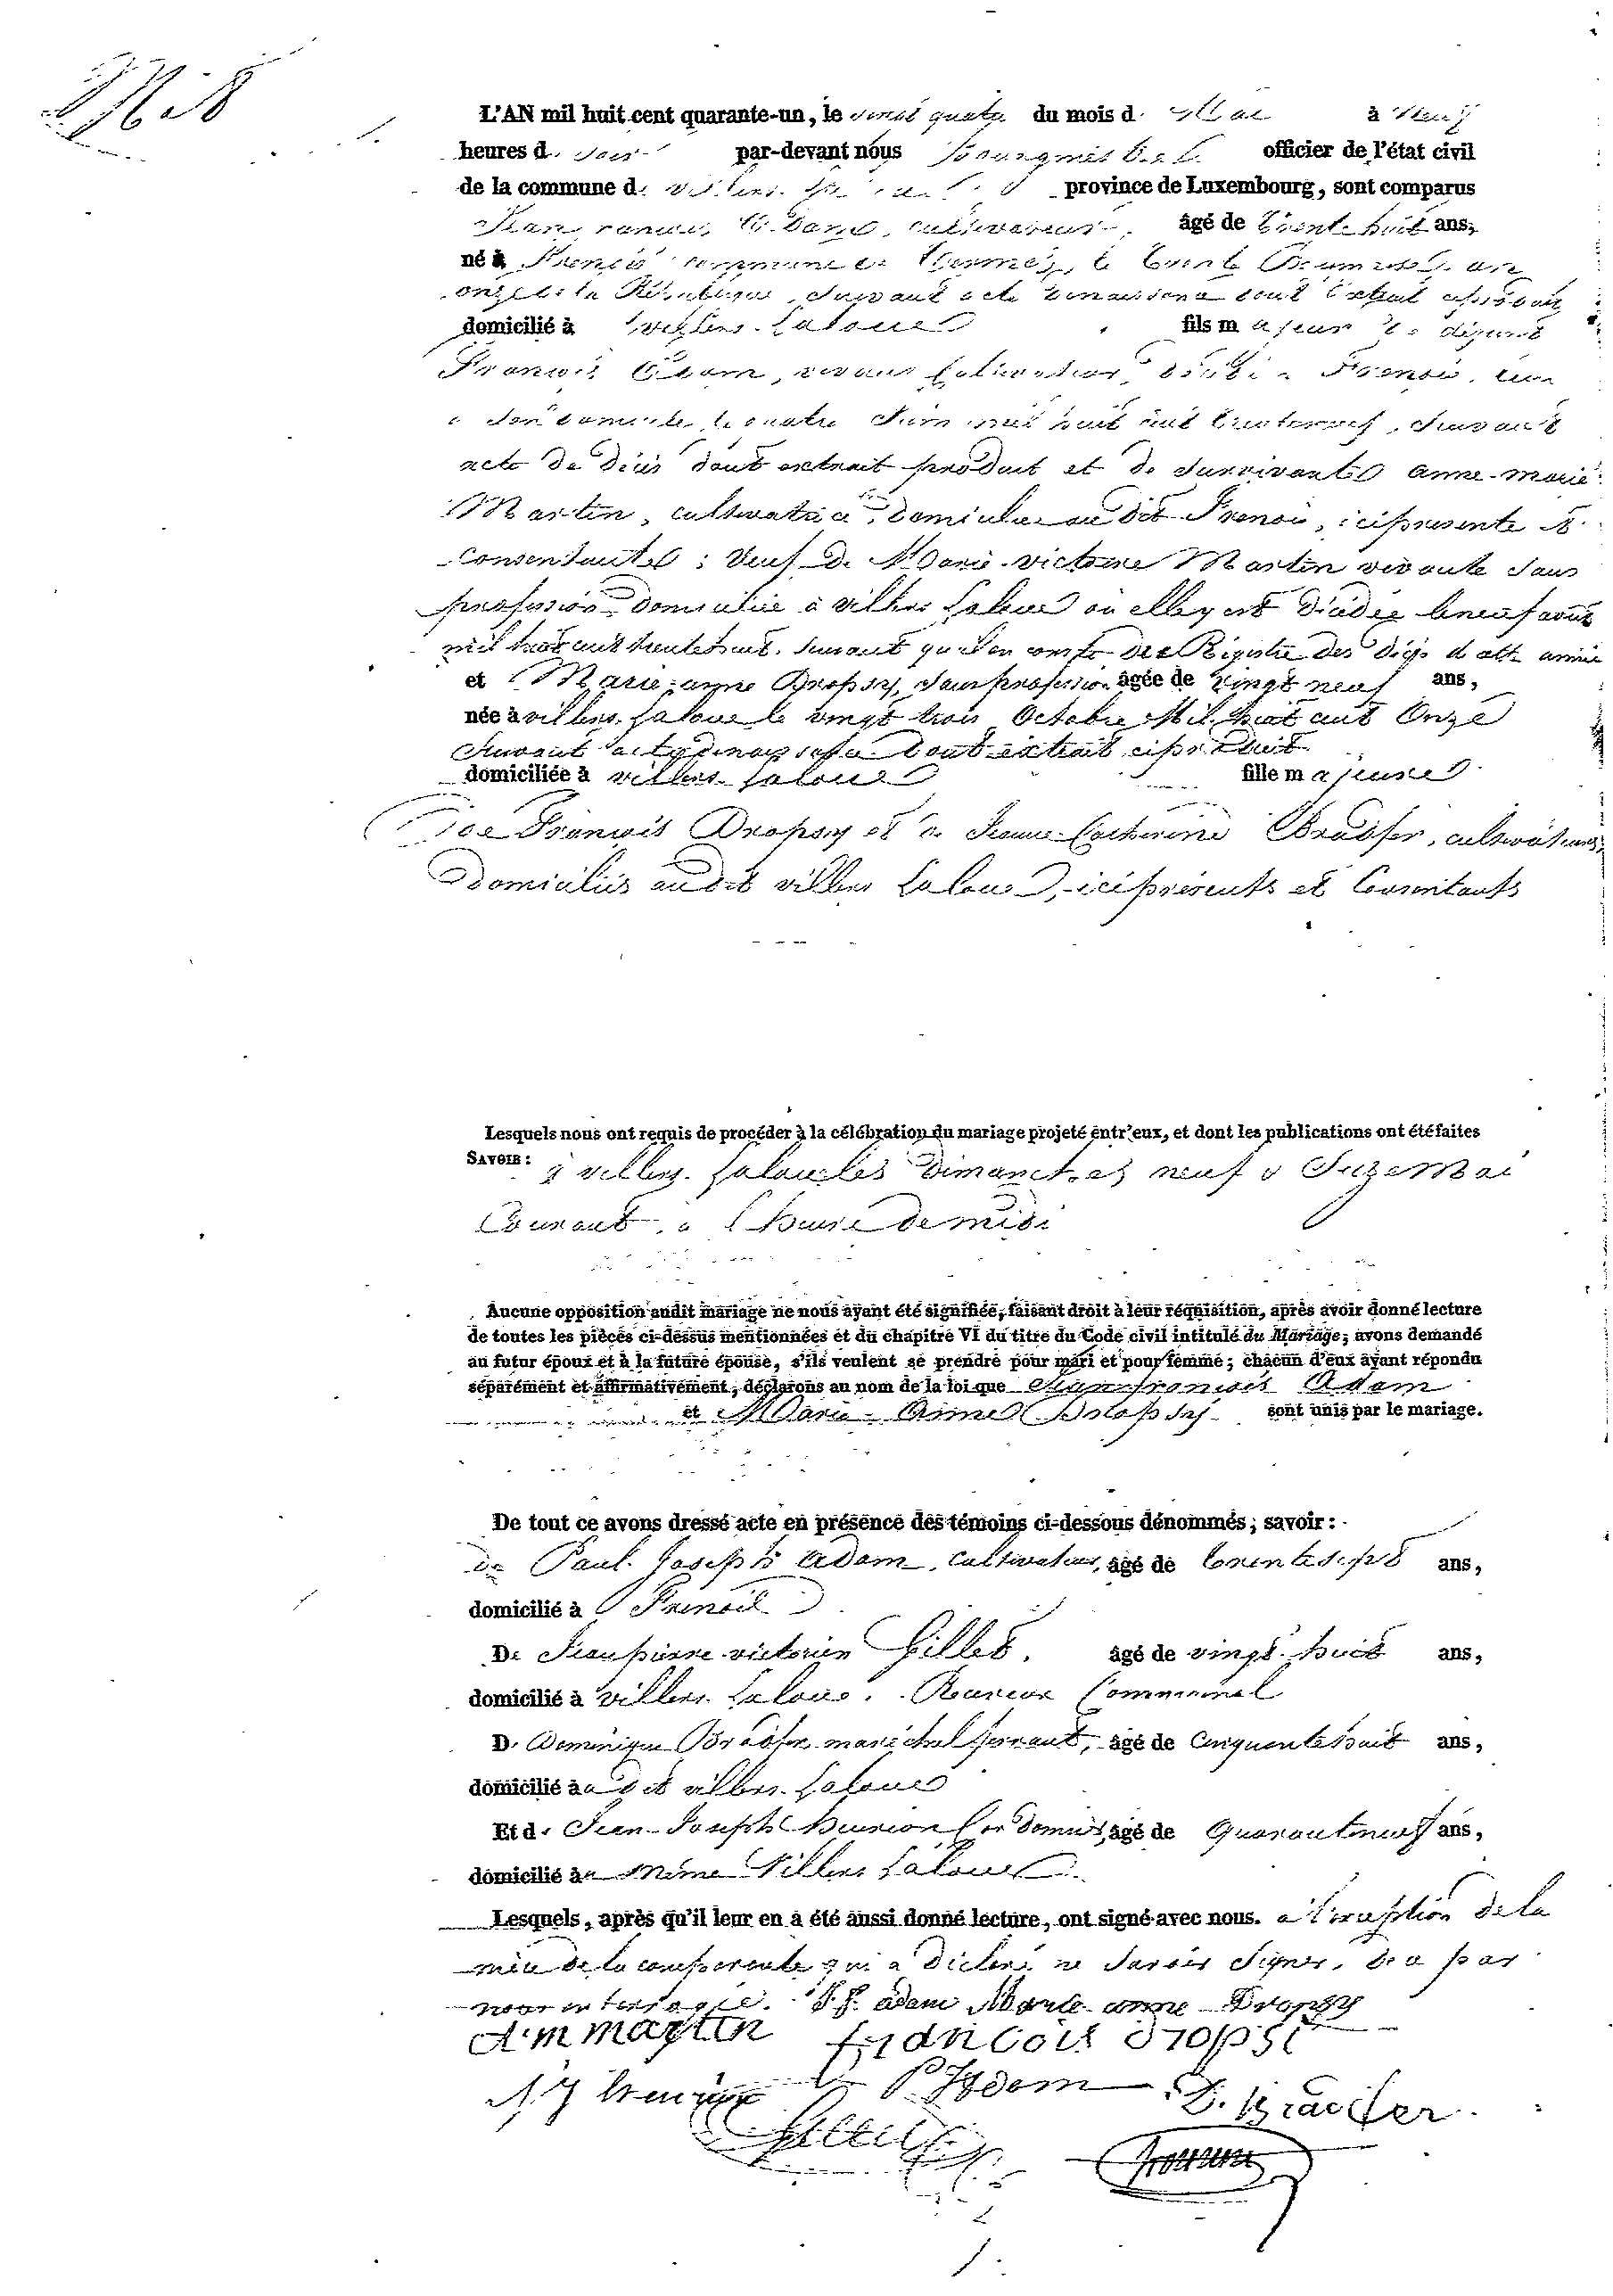 N° 8
L'AN mil huit cent quarante-un, le vingt quatre du mois d. Mai à neuf
heures d. soir par-devant nous Bourgmestre officier de l'état civil
de la commune d. villers province de Luxembourg, sont comparus
Jean françois Adam, cultivateur, âgé de trente huit ans,
né à Frenois commune de le trente Brumaire an
onze de la République, suivant acte de naissance dont extrait
domicilié à villers-Laloue fils majeur de défunt
François Adam, vivant cultivateur, Frenois,
son domicile, le quatre Juin mil huit cent trente neuf, suivant
acte de décès dont extrait produit et de survivante anne-marie
Martin, cultivatrice, domiciliée au dit Frenois, ici présente &
consentante; veuf de Marie-victoire Martin vivante sans
profession domiciliée à villers Laloue où elle y est décédée le neuf août
mil huit cent trente huit, suivant qu'il en conste des Registre des décès de cette année
et Marie-anne Dropsy, sans profession âgée de vingt neuf ans,
née à villers-Laloue le vingt trois Octobre Mil huit cent Onze
suivant acte de naissance dont extrait ci produit
domiciliée à villers-Laloue fille majeure
de François Dropsy et de Jeanne Catherine Braffer, cultivateurs,
domiciliés audit villers Laloue, ici présents et Consentants
Lesquels nous ont requis de procéder à la célébration du mariage projeté entr'eux, et dont les publications ont été faites
SAVOIR : à villers-Laloue les Dimanches neuf & Seize Mai
Courant, à l'heure de midi
Aucune opposition audit mariage ne nous ayant été signifiée, faisant droit à leur réquisition, après avoir donné lecture
de toutes les pièces ci-dessus mentionnées et du chapitre VI du titre du Code civil intitulé du Mariage; avons demandé
au futur époux et à la future épouse, s'ils veulent se prendre pour mari et pour femme; chacun d'eux ayant répondu
séparément et affirmativement, déclarons au nom de la loi que Jean françois Adam
et Marie-Anne Dropsy sont unis par le mariage.
De tout ce avons dressé acte en présence des témoins ci-dessous dénommés; savoir :
de Paul-Joseph Adam, Cultivateur, âgé de trente sept ans,
domicilié à Frenois
De Jean pierre victorien Gillet, âgé de vingt-huit ans,
domicilié à villers-Laloue, Receveur Communal
D. Dominique Braffer maréchal ferrant, âgé de Cinquante huit ans,
domicilié à au dit villers-Laloue
Et d. Jean-Joseph Cordonnier, âgé de Quarante neuf ans,
domicilié à au même Villers Laloue
Lesquels, après qu'il leur en a été aussi donné lecture, ont signé avec nous. à l'exception de la
mère de la comparente qui a déclaré ne savoir signer, de a par
nous interrogée. J. f. adam Marie-anne Dropsy
A. m martin françois dropsi
P J Adam D. Braffer
Gillet